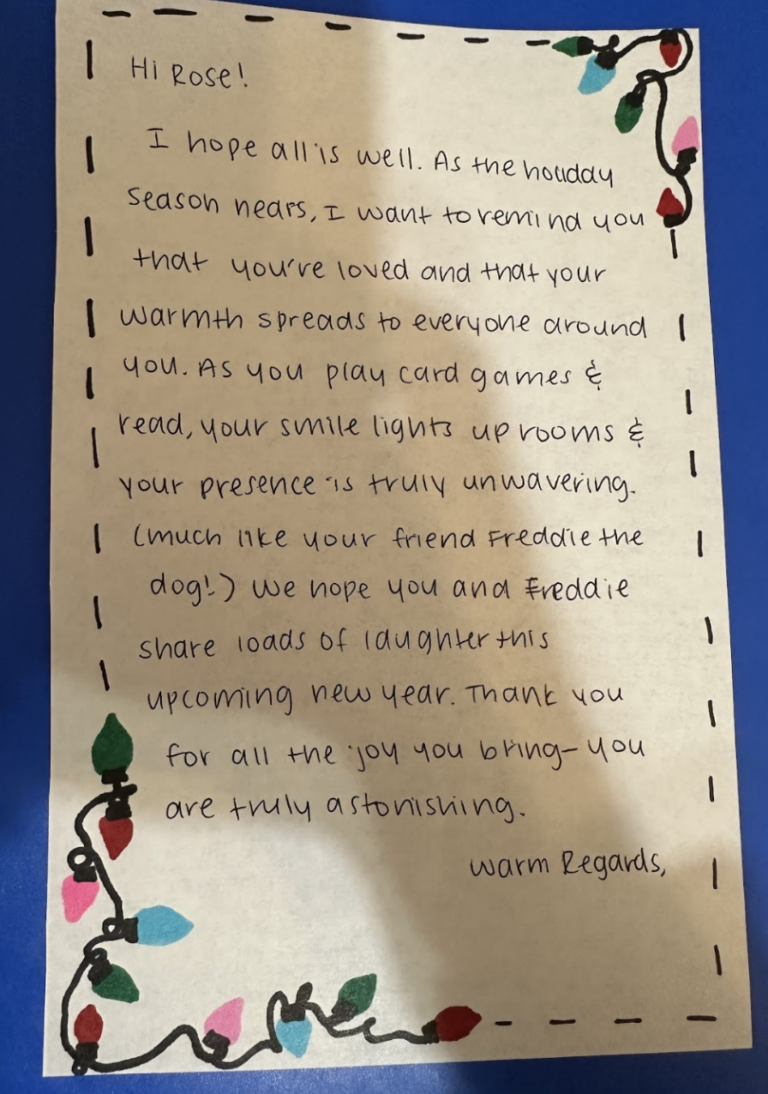 Hi Rose!
I hope all is well. As the holiday
season nears, I want to remind you
that you've loved and that your
warmth spreads to everyone around
you. As you play card games &
read, your smile lights up rooms &
your presence is truly unwavering.
(much like your friend Freddie the
dog!) We hope you and Freddie
share loads of laughter this
upcoming new year. Thank you
for all the joy you bring- you
are truly astonishing.
Warm Regards,